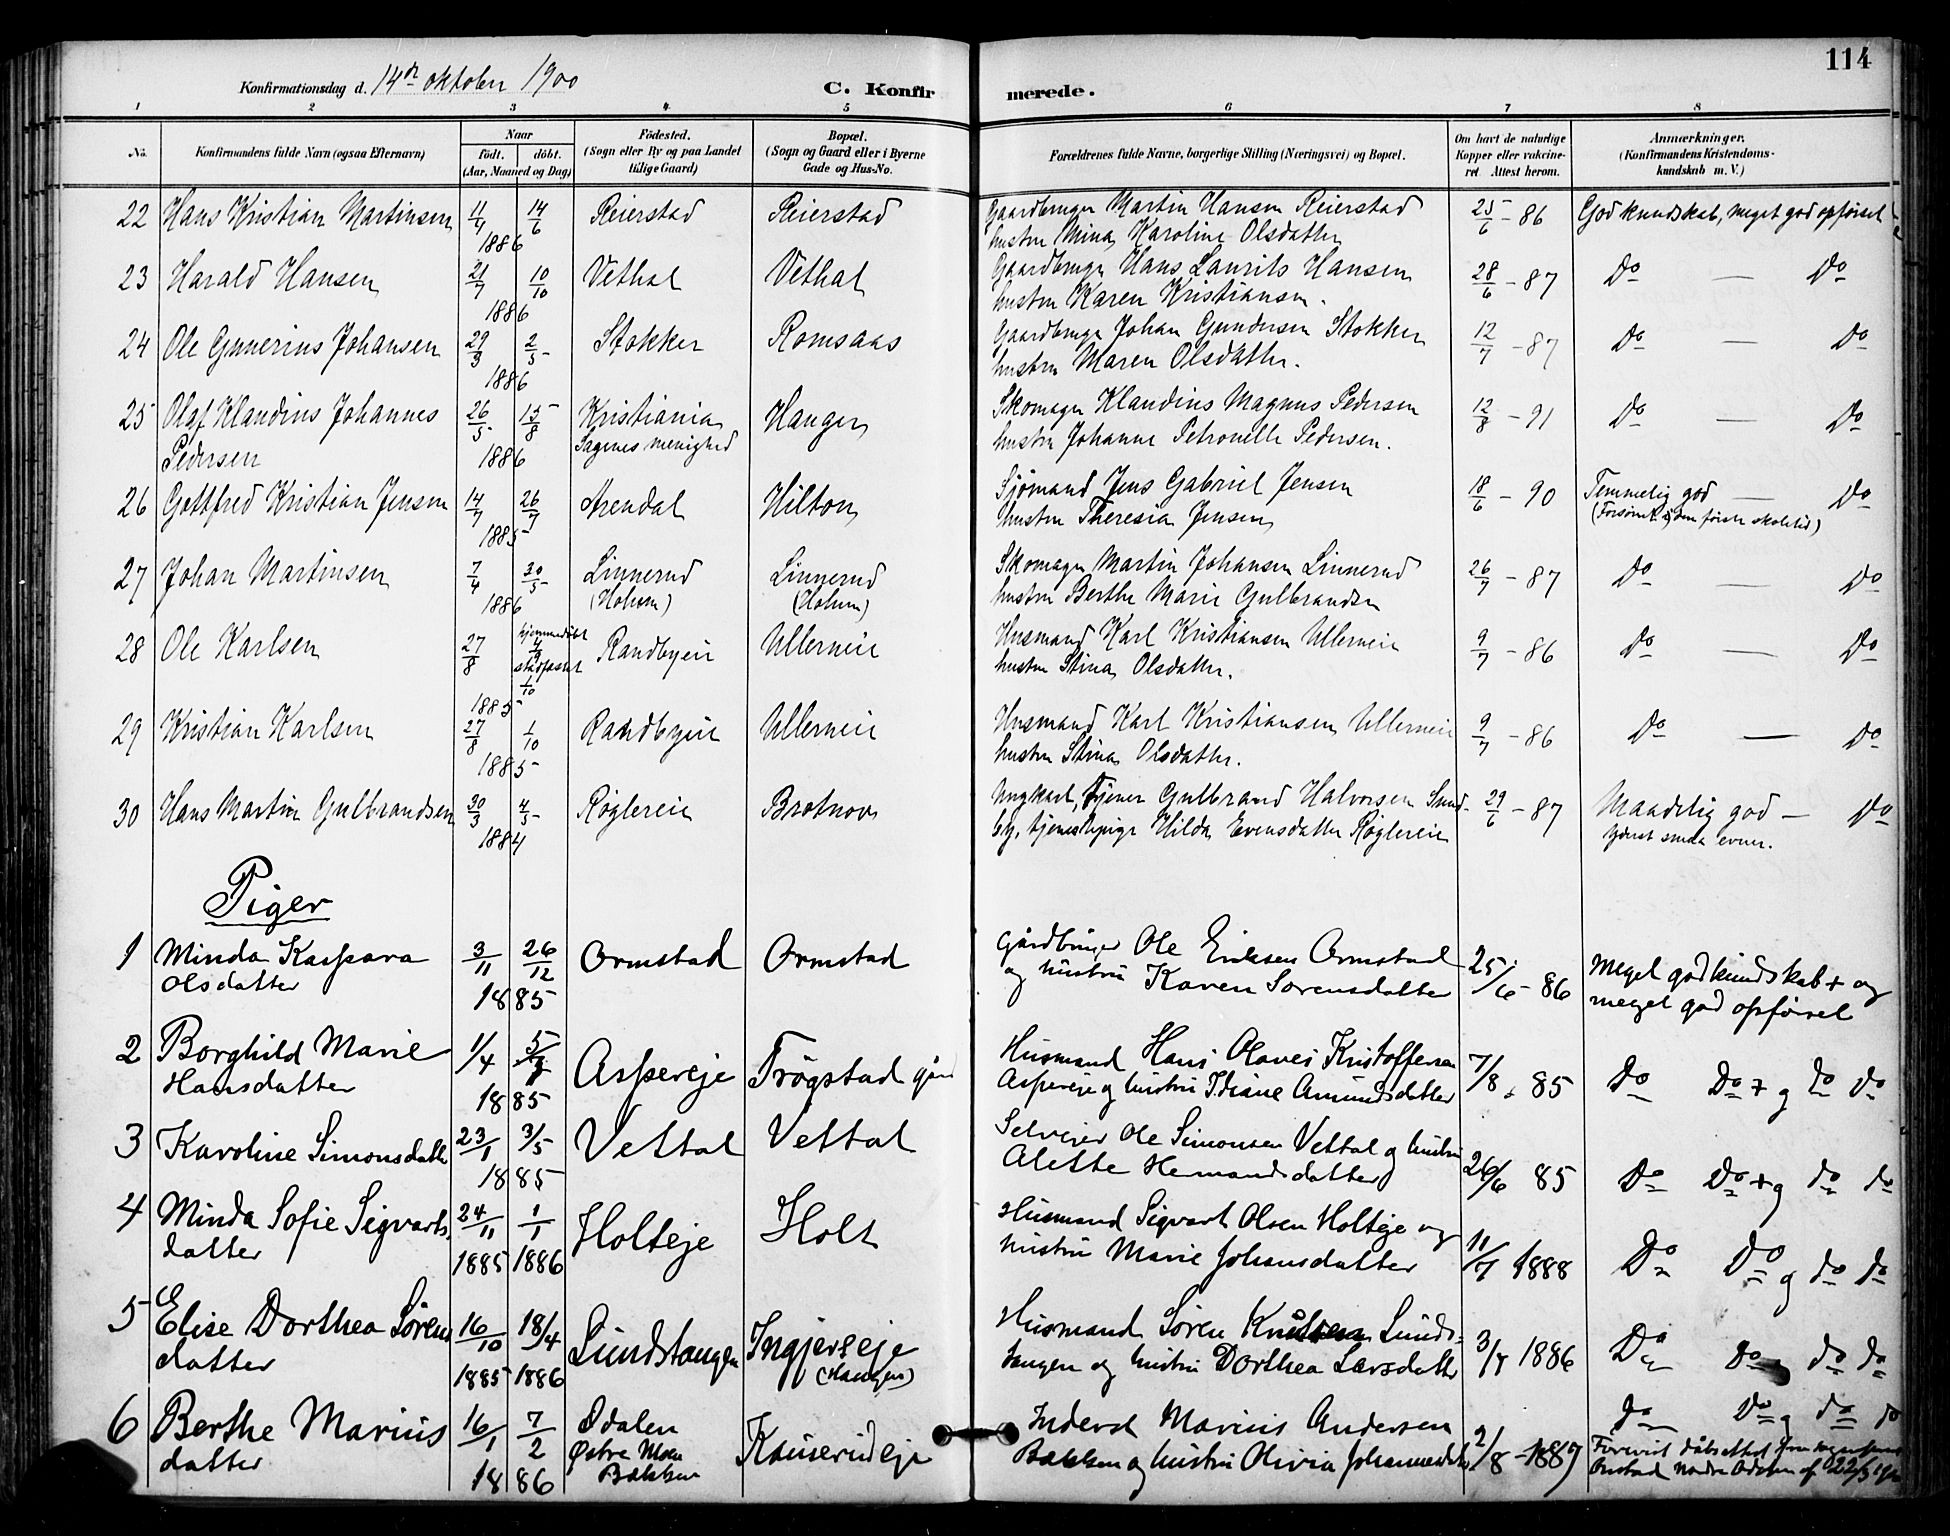 114
Konfirmationsdag d. 14de oktober 1900
C. Konfirmerede.
1 2 3 4 5 6 7 8
No. Konfirmandens fulde Navn (ogsaa Efternavn) Naar født. døbt. (Aar, Maaned og Dag) Fødested. (Sogn eller By og paa Landet tillige Gaard) Bopæl. (Sogn og Gaard eller i Byerne Gade og Hus-No. Forældrenes fulde Navne, borgerlige Stilling (Næringsvei) og Bopæl. Om havt de naturlige Kopper eller vakcineret. Attest herom. Anmærkninger, (Konfirmandens Kristendomskundskab m. V.)
22 Hans Kristian Martinsen 11/4 14/6 1886 Reierstad Reierstad Gaardbruger Martin Hansen Reierstad
hustru Mina Karoline Olsdatter 25/6 - 86 God kundskab, meget god opførsel
23 Harald Hansen 21/7 10/10 1886 Vethal Vethal Gaardbruger Hans Laurits Hansen
hustru Karen Kristiansen. 28/6 - 87 Do — Do
24 Ole Gunerius Johansen 29/3 2/5 1886 Stokker Romsaas Gaardbruger Johan Gundersen Stokker
hustru Maren Olsdatter. 12/7 - 87 Do — Do
25 Olaf Klaudius Johannes
Pedersen 26/5 15/8 1886 Kristiania
Sagenes menighed Hanger Skomager Klaudius Magnus Pedersen
hustru Johanne Petronelle Pedersen. 12/8 - 91 Do — Do
26 Gottfred Kristian Jensen 14/7 26/7 1885 Arendal Hilton Sjømand Jens Gabriel Jensen
hustru Theresia Jensen 18/6 - 90 Temmelig god — Do
(Forsømt i den første skoletid)
27 Johan Martinsen 7/4 30/5 1886 Linnerud
(Holum) Linnerud
(Holum) Skomager Martin Johansen Linnerud
hustru Berthe Marie Gulbrandsen 26/7 - 87 Do — Do
28 Ole Karlsen 27/8 hjemmedøbt 4/9
stadfæstet 1/10 1885 Randbyeie Ullerneie Husmand Karl Kristiansen Ullerneie
hustru Stina Olsdatter. 9/7 - 86 Do — Do
29 Kristian Karlsen 27/8 1/10 1885 Randbyeie Ullerneie Husmand Karl Kristiansen Ullerneie
hustru Stina Olsdatter. 9/7 - 86 Do — Do
30 Hans Martin Gulbrandsen 30/3 4/5 1884 Røglereie Brotnov Ungkarl, tjener Gulbrand Halvorsen Sund-
by, tjenestepige Hilda Evensdatter Røglereie 29/6 - 87 Maadelig god — Do
yderst smaa evner.
Piger
1 Minda Kaspara
Olsdatter 3/11 26/12 1885 Ormstad Ormstad Gårdbruger Ole Eriksen Ormstad
og hustru Karen Sørensdatter 25/6 - 86 Meget god kundskab + og
meget god opførsel
2 Borghild Marie
Hansdatter 1/4 5/7 1885 Aspereje Trøgstad gård Husmand Hans Olaves Kristoffersen
Aspereje og hustru Idiane Amundsdatter 7/8 85 Do Do + g do do
3 Karoline Simonsdatt 23/1 3/5 1885 Vettal Vettal Selveier Ole Simonsen Vettal og hustru
Alette Hemandsdatter 26/6 85 Do Do + g do do
4 Minda Sofie Sigvarts
datter 24/11 1885 1/1 1886 Holteje Holt Husmand Sigvart Olsen Holteje og
hustru Marie Johansdatter 11/7 1888 Do Do g do do
5 Elise Dorthea Søren
datter 16/10 1885 18/4 1886 Lundstangen Ingjerseje
(Hanger) Husmand Søren Knutsen Lunds-
tangen og hustru Dorthea Larsdatter 3/7 1886 Do Do g do do
6 Berthe Marius
datter 16/1 7/2 1886 Odalen
Østre Moen
Bakken Kauserudeje Inderst Marius Andersen
Bakken og hustru Olivia Johannesdtr 2/8 - 1887 do Do g do do
Forevist dåbsattest fra sognepræst
Nordre Odalen af 22/3